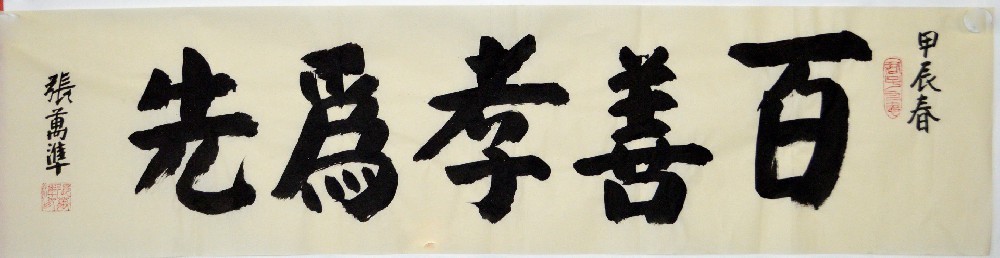 甲辰春
百善孝為先
張萬準